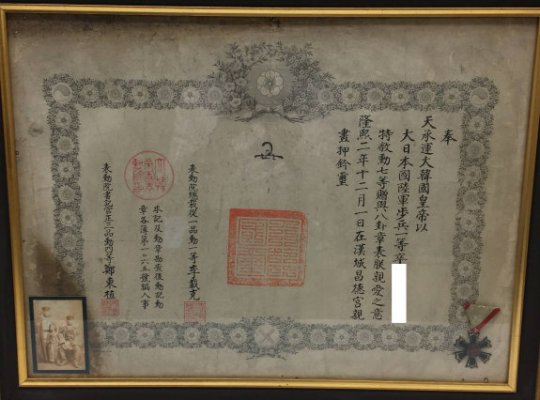 奉
天承運大韓國皇帝以
大日本國陸軍步兵一等卒
特敍勳七等贈與八卦章表朕親愛之意
隆熙二年十二月一日在漢城昌德宮親
畫押鈐璽
表勳院總裁從一品勳一等李載克
本記及勳章勘查後勳記勳
章各簿第一〇六五號編入事
表勳院書記官正三品勳四等鄭東植